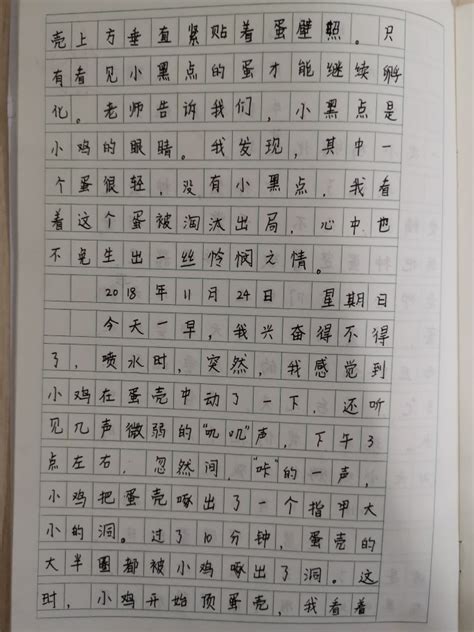 壳上方垂直紧贴着蛋壁照。只
有看见小黑点的蛋才能继续孵
化。老师告诉我们，小黑点是
小鸡的眼睛。我发现，其中一
个蛋很轻，没有小黑点，我看
着这个蛋被淘汰出局，心中也
不免生出一丝怜悯之情。
2018年11月24日 星期日
今天一早，我兴奋得不得
了，喷水时，突然，我感觉到
小鸡在蛋壳中动了一下，还听
见几声微弱的“叽叽”声，下午3
点左右，忽然间，“咔”的一声，
小鸡把蛋壳啄出了一个指甲大
小的洞。过了10分钟，蛋壳的
大半圈都被小鸡啄出了洞。这
时，小鸡开始顶蛋壳，我看着